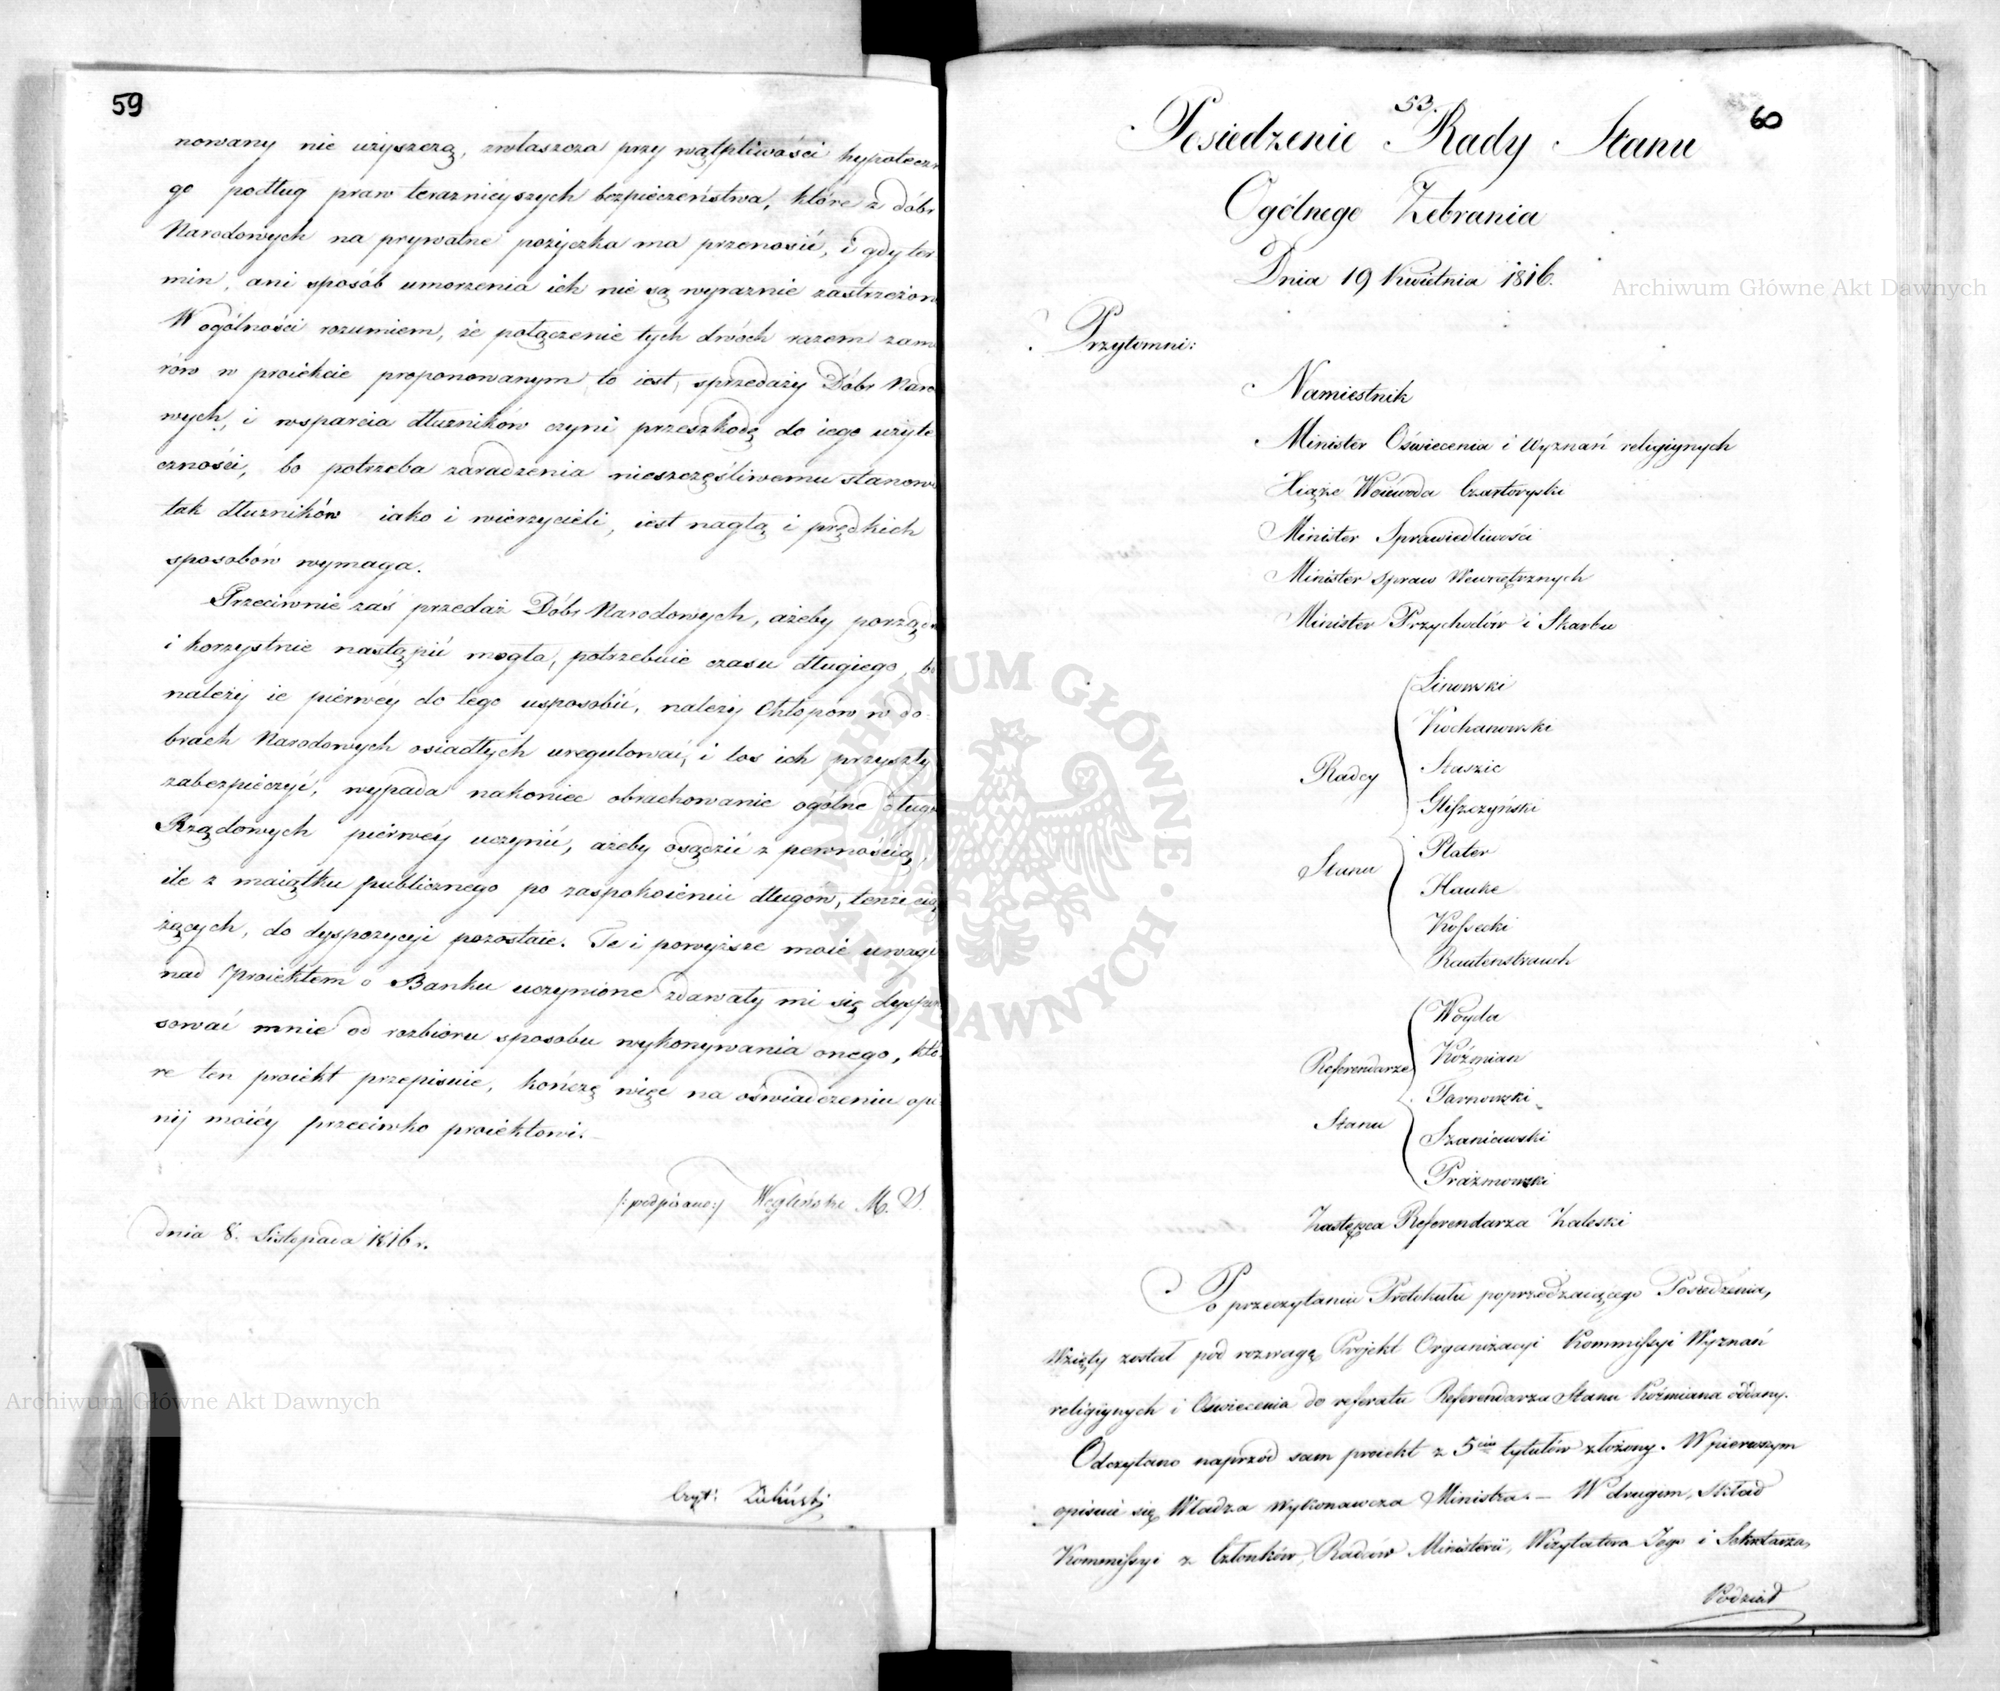 59
nowany nie uzyszczą, zwłaszcza przy wątpliwości hypoteczn
go podług praw teraznieyszych bezpieczeństwa, które z dóbr
Narodowych na prywatne pożyczka ma przenosić, i gdy ter
min, ani sposób umorzenia ich nie są wyraznie zastrzeżon
W ogólności rozumiem, że połączenie tych dwóch razem zami
rów w proiekcie proponowanym to iest, sprzedaży Dóbr Naro
wych, i wsparcia dłużników czyni przeszkodę do iego użyte
czności, bo potrzeba zaradzenia nieszczęśliwemu stanowi
tak dłużników iako i wierzycieli, iest nagłą i prędkich
sposobów wymaga.
Przeciwnie zaś przedaż Dóbr Narodowych, ażeby porząd
i korzystnie nastąpić mogła, potrzebuie czasu długiego, bo
należy ie pierwey do tego usposobić, należy Chłopów w do
brach Narodowych osiadłych uregulować, i los ich przyszły
zabezpieczyć, wypada nakoniec obrachowanie ogólne długó
Rządowych pierwéy uczynić, ażeby osądzić z pewnością,
ile z maiątku publicznego po zaspokoieniu długów, tenże cią
żących, do dyspozycyi pozostaie. Te i powyższe moie uwagi
nad proiektem o Banku uczynione zdawały mi się dyspen
sować mnie od rozbioru sposobu wykonywania onego, któ
re ten proiekt przepisuie, kończę więc na oświadczeniu opi
nij moiéy przeciwko proiektowi.
/:podpisano:/ Węgleński M. S.
dnia 8. Listopada 1816 r.
53.
60
Posiedzenie Rady Stanu
Ogólnego Zebrania
Dnia 19 Kwietnia 1816.
Przytomni:
Namiestnik
Minister Oświecenia i Wyznań religiynych
Xiąże Woiewoda Czartoryski
Minister Sprawiedliwości
Minister Spraw Wewnętrznych
Minister Przychodów i Skarbu
Radcy Stanu
Linowski
Kochanowski
Staszic
Gliszczyński
Plater
Hauke
Kossecki
Rautenstrauch
Referendarze Stanu
Woyda
Koźmian
Tarnowski
Szaniawski
Prażmowski
Zastępca Referendarza Zaleski
Po przeczytaniu Protokułu poprzedzaiącego Posiedzenia,
Wzięty został pod rozwagę Projekt Organizacyi Kommissyi Wyznań
religiynych i Oświecenia do referatu Referendarza Stanu Koźmiana oddany.
Odczytano naprzód sam proiekt z 5ciu tytułów złożony. W pierwszym
opisuie się Władza Wykonawcza Ministra. – W drugim, Skład
Kommissyi z Członków, Radców Ministerii, Wizytatora Jego i Sekretarza,
Podział
Archiwum Główne Akt Dawnych
Archiwum Główne Akt Dawnych
ARCHIWUM GŁÓWNE AKT DAWNYCH